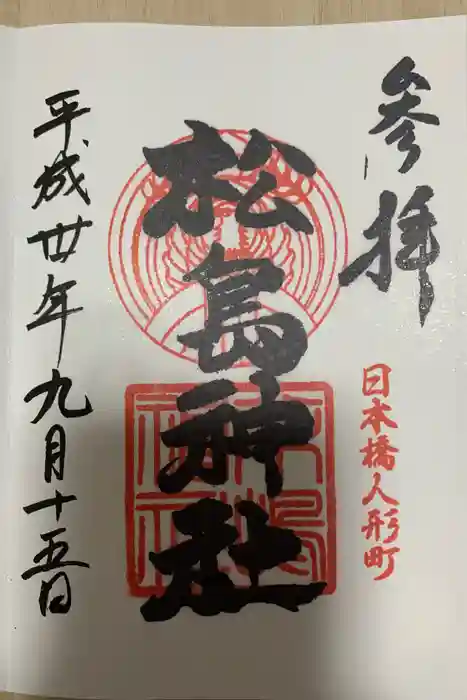 参拝
日本橋人形町
松島神社
平成卅年九月十五日